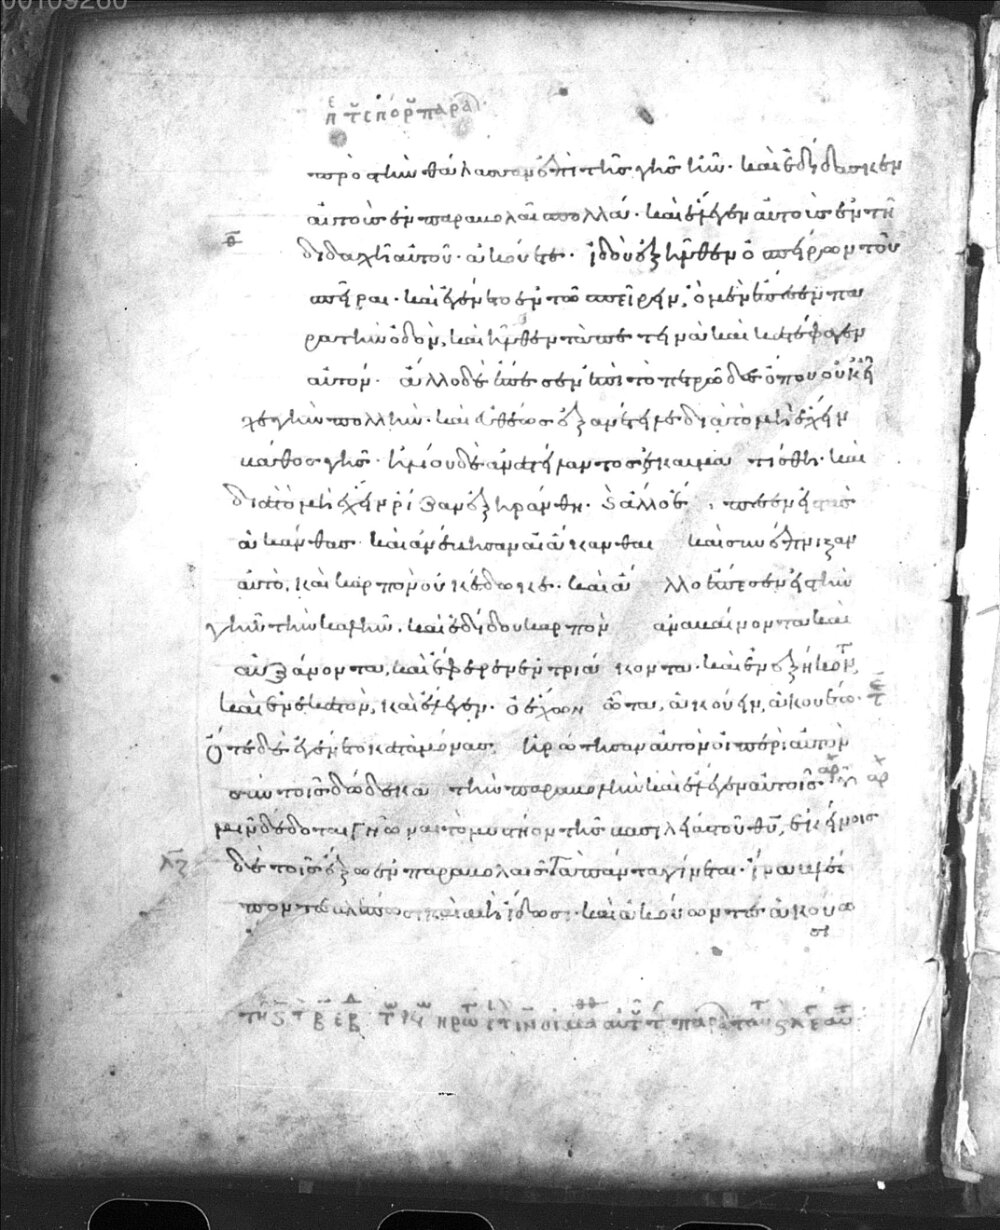 00109260
π τ σπόρ παρα
πρὸς τὴν θάλασσαν ἐπὶ τῆς γῆς ἦν· καὶ ἐδίδασκεν
αὐτοὺς ἐν παραβολαῖς πολλά· καὶ ἔλεγεν αὐτοῖς ἐν τῆ
διδαχῆ αὐτοῦ· ἀκούετε· ἰδοὺ ἐξῆλθεν ὁ σπείρων τοῦ
σπεῖραι· καὶ ἐγένετο ἐν τῶ σπείρειν, ὃ μὲν ἔπεσεν πα
ρα τὴν ὁδὸν, καὶ ἦλθεν τὰ πετεινὰ καὶ κατέφαγεν
αὐτόν· ἄλλο δὲ ἔπεσεν ἐπὶ τὸ πετρῶδες ὅπου οὐκ εἶ
χε γῆν πολλὴν· καὶ εὐθέως ἐξανέτειλε διὰ τὸ μὴ ἔχειν
βάθος γῆς· ἡλίου δὲ ἀνατείλαντος ἐκαυματίσθη· καὶ
διὰ τὸ μὴ ἔχειν ρίζαν ἐξηράνθη· καὶ ἄλλο ἔπεσεν εἰς τὰς
ἀκάνθας· καὶ ἀνέβησαν αἱ ἄκανθαι καὶ συνέπνιξαν
αὐτὸ, καὶ καρπὸν οὐκ ἔδωκε· καὶ ἄλλο ἔπεσεν εἰς τὴν
γῆν τὴν καλὴν, καὶ ἐδίδου καρπὸν ἀναβαίνοντα καὶ
αὐξάνοντα, καὶ ἔφερεν ἐν τριάκοντα· καὶ ἐν ἑξήκοντ,
καὶ ἐν ἑκατὸν, καὶ ἔλεγεν· ὁ ἔχων ὦτα, ἀκούειν, ἀκουέτω· τ
Ὅτε δὲ ἐγένετο καταμόνας, ἠρώτησαν αὐτὸν οἱ περὶ αὐτὸν
σὺν τοῖς δώδεκα τὴν παραβολὴν καὶ ἔλεγεν αὐτοῖς αρ
μῖν δέδοται γνῶναι τὸ μυστήριον τῆς βασιλείας τοῦ θῦ, ἐκείνοις
λζ δὲ τοῖς ἔξω ἐν παραβολαῖς τὰ πάντα γίνεται· ἵνα βλέ
ποντες βλέπωσι καὶ μὴ ἴδωσι· καὶ ἀκούοντες ἀκούω
σι